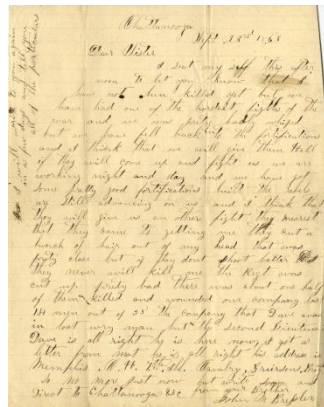 Chattanooga
Sept 23rd 1863
Dear Sister
I seat my self this after
noon to let you know that I
have not ben killed yet but we
have had one of the hardest fights of the
war and we was prity badly whiped
but we have fell back to the fortifications
and I think that we will give them Hell
if they will come up and fight us we are
working night and day and we have got
some pretty good fortifications built the rebls
are still advancing on us and I think that
they will give us an other fight they nearest
that they came to getting me they cut a
bunch of hair out of my head that was
prity close but if they dont shoot better
they never will kill me the Regt was
cut up prity bad there was about one half
of them killed and wounded our company lost
14 men out of 23 the company that Dave was
in lost evry man but the second Lieutenant
Dave is all right he is here now I got a
letter from he is all right his address is
Memphis
So no more just now but write soon and
Direct to Chattanooga &c from your Brother
John M